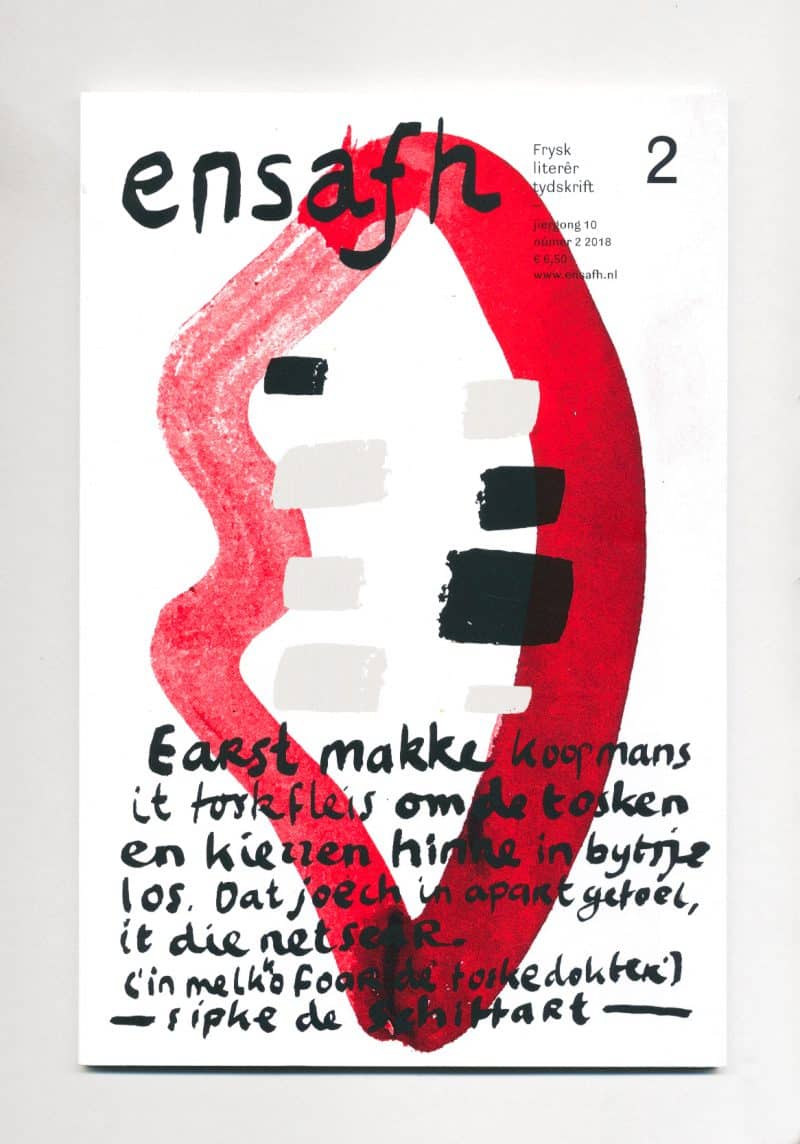 ensafh
Frysk
literêr
tydskrift
2
jiergong 10
nûmer 2 2018
€ 6,50
www.ensafh.nl
Earst makke Koopmans
it toskfleis om de tosken
en kiezzen hinne in bytsje
los. Dat joech in apart gefoel,
it die net sear.
('in melk"o foar de toskedokter')
— sipke de Schiffart —